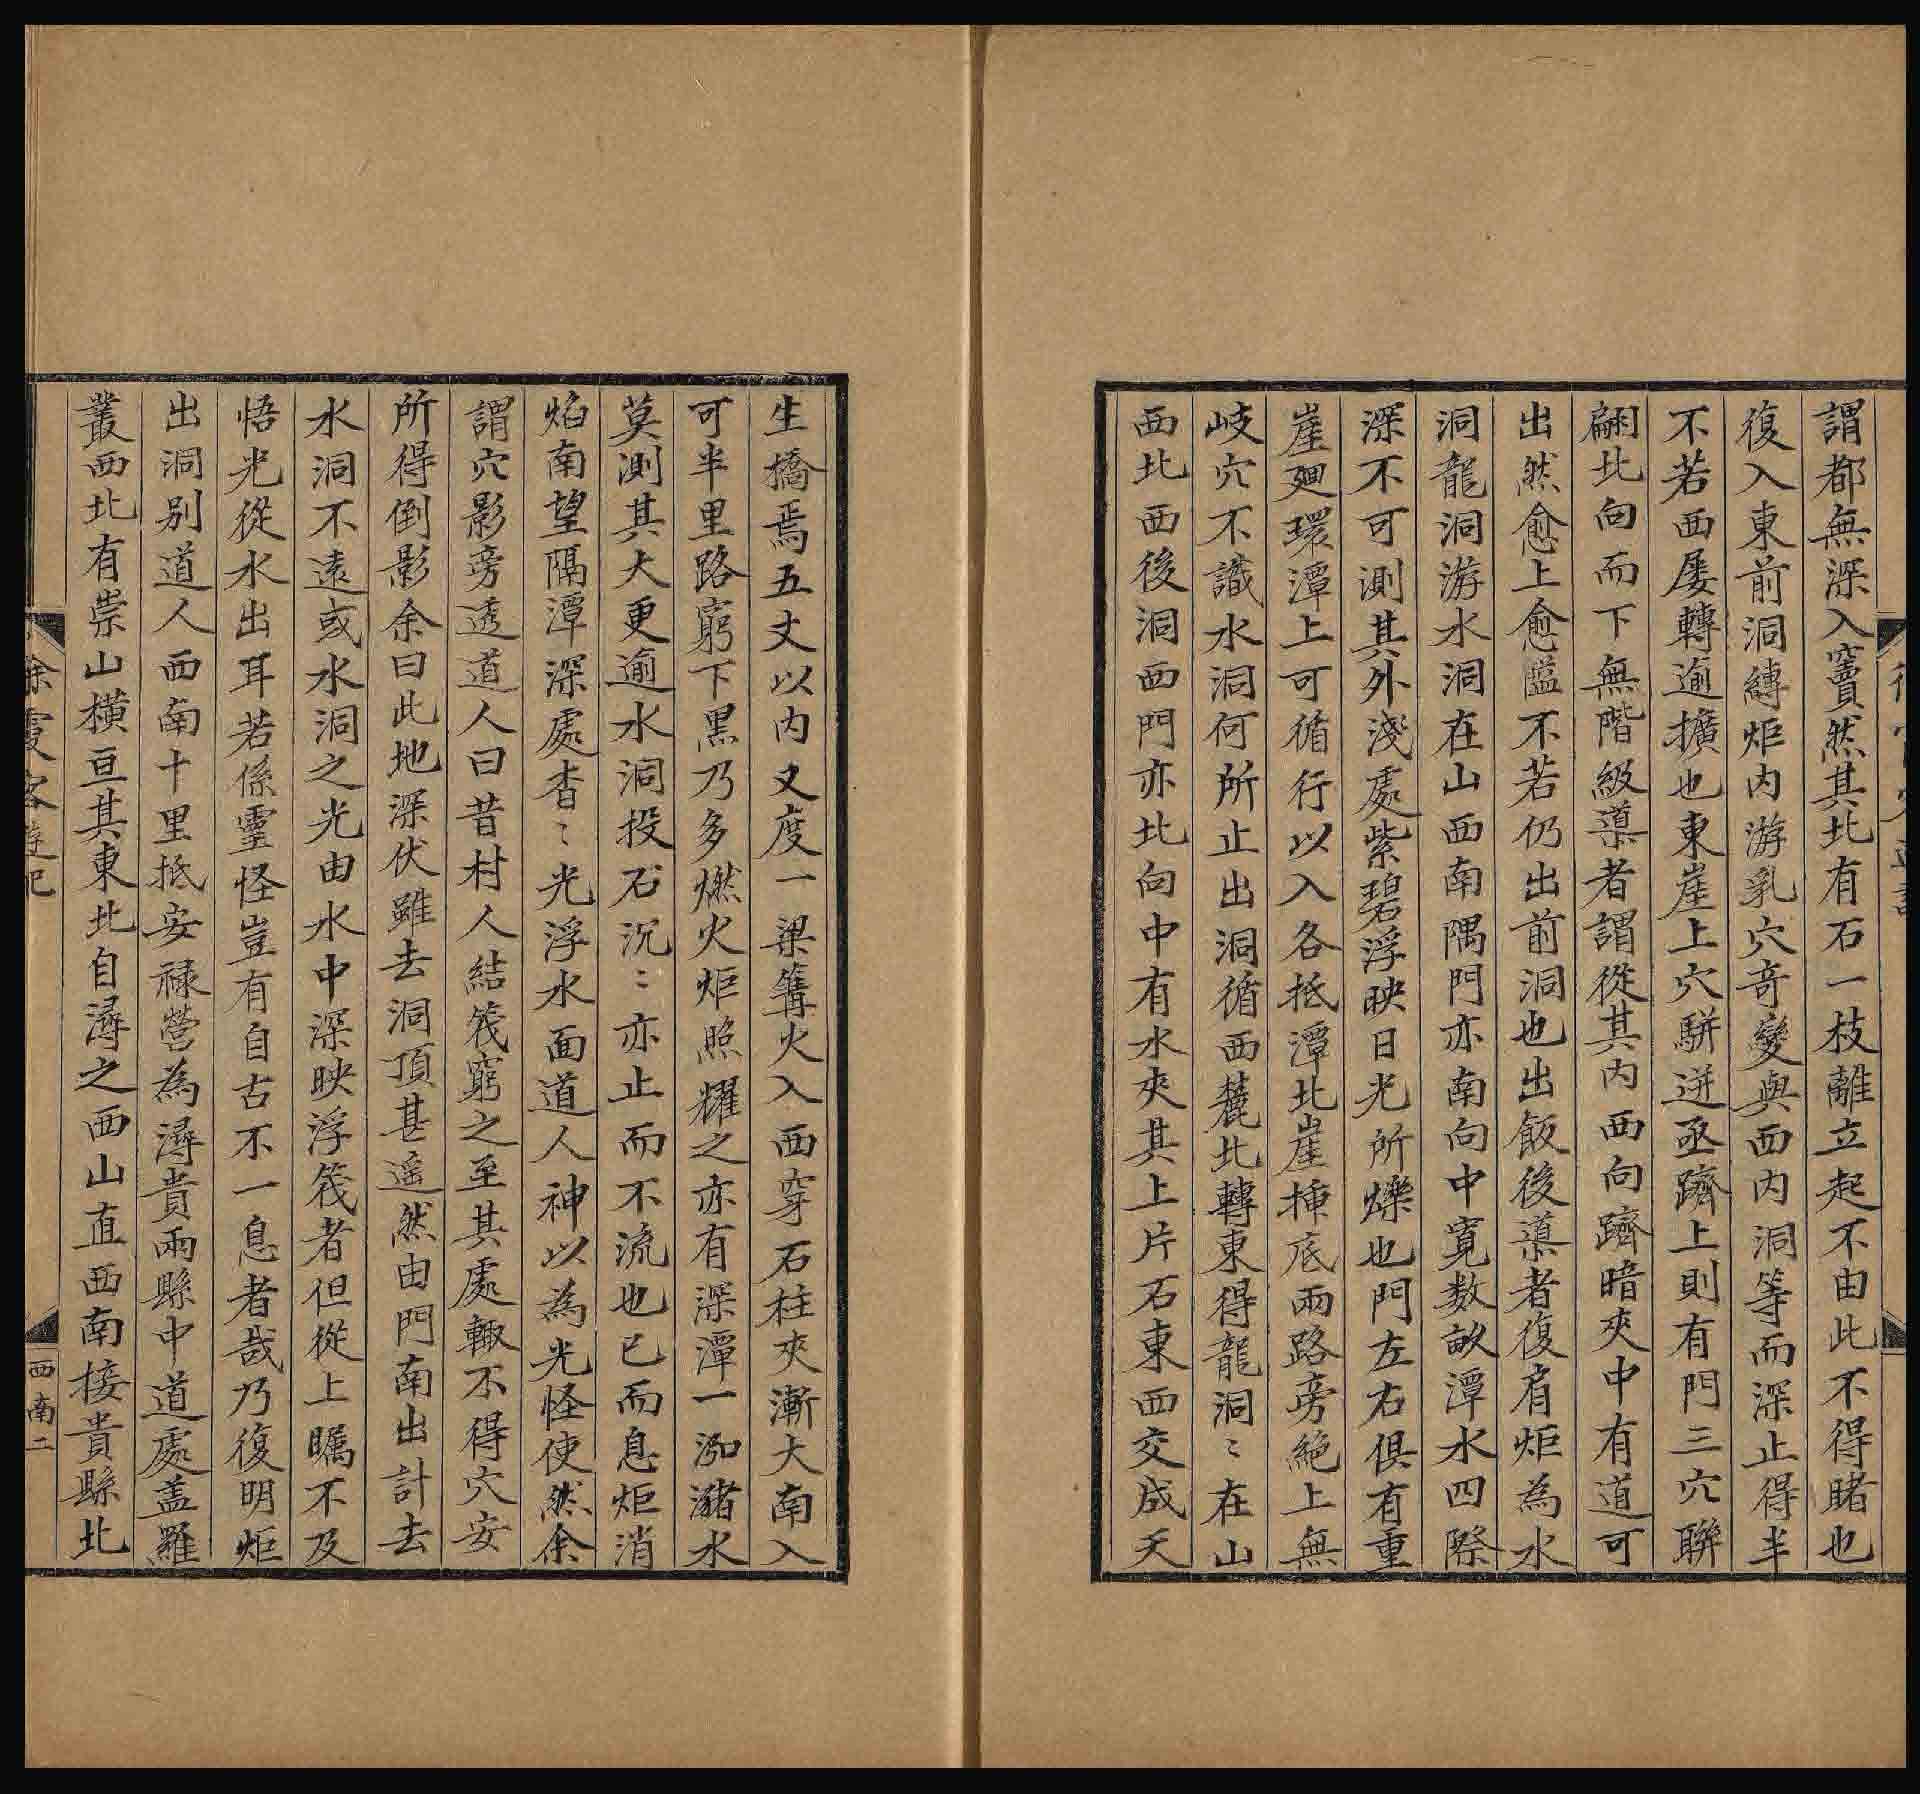 謂都無深入竇然其北有石一枝離立起不由此不得睹也
復入東前洞縛炬内游乳穴竒變與西内洞等而深止得半
不若西屡轉逾擴也東崖上穴駢迸亟躋上則有門三穴聯
翩北向而下無階級導者謂從其内西向躋暗夾中有道可
出然愈上愈隘不若仍出前洞也出飯後導者復肩炬為水
洞龍洞游水洞在山西南隅門亦南向中寛数畝潭水四際
深不可測其外淺處紫碧浮映日光所爍也門左右俱有重
崖廻環潭上可循行以入各抵潭北崖揷底兩路旁絶上無
岐穴不識水洞何所止出洞循西麓北轉東得龍洞〻在山
西北西後洞西門亦北向中有水夾其上片石東西交成天
生橋焉五丈以内又度一梁篝火入西穿石柱夾漸大南入
可半里路窮下黑乃多燃火炬照耀之亦有深潭一泓瀦水
莫測其大更逾水洞投石沉〻亦止而不流也已而息炬消
焰南望隔潭深處杳〻光浮水面道人神以為光怪使然余
謂穴影旁透道人曰昔村人結筏窮之至其處輙不得穴安
所得倒影余曰此地深伏雖去洞頂甚遥然由門南出計去
水洞不遠或水洞之光由水中深映浮筏者但從上矚不及
悟光從水出耳若係靈怪豈有自古不一息者哉乃復明炬
出洞别道人西南十里抵安禄營為潯貴兩縣中道處盖羅
叢西北有崇山横亘其東北自潯之西山直西南接貴縣北
徐霞客遊記
西南二